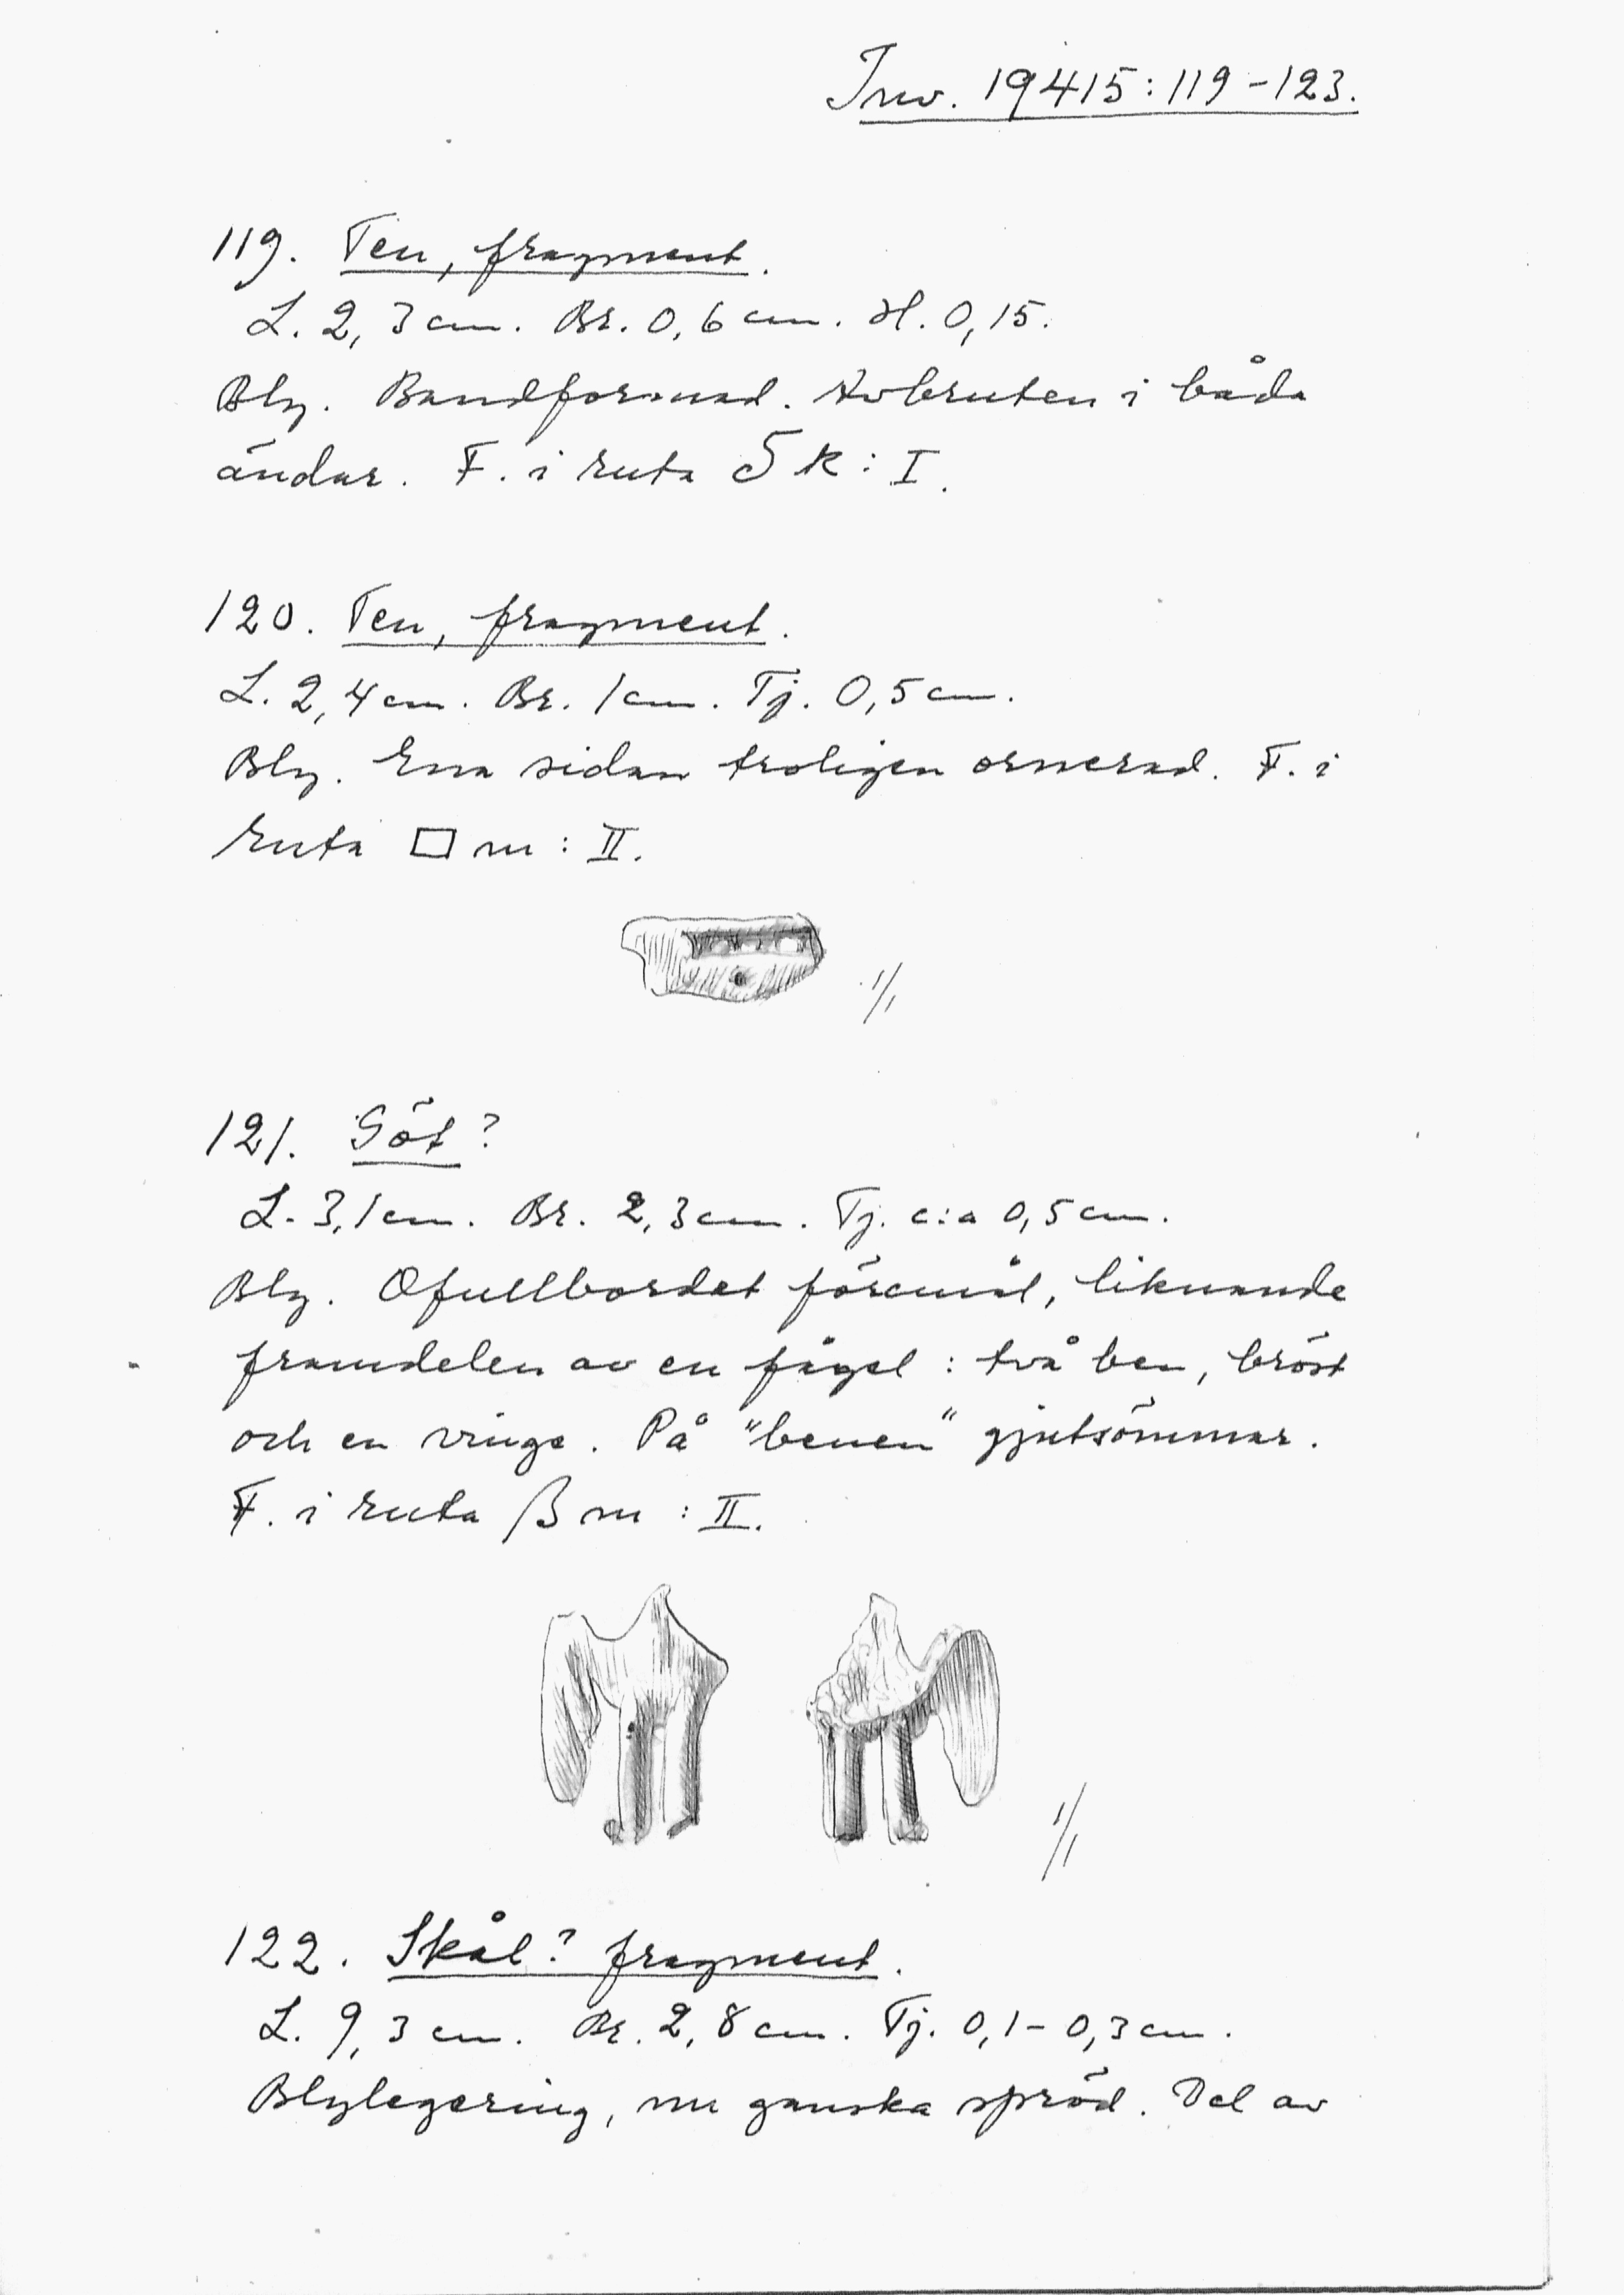 Inv. 19415:119-123.
119. Ten, fragment.
L. 2,3 cm. Br. 0,6 cm. H. 0,15.
Bly. Bandformad. Avbruten i båda
ändar. F. i ruta Sk: I.
120. Ten, fragment.
L. 2,4 cm. Br. 1 cm. Tj. 0,5 cm.
Bly. Ena sidan troligen ornerad. F. i
ruta □ m: II.
1/1
121. Göt?
L. 3,1 cm. Br. 2,3 cm. Tj. c:a 0,5 cm.
Bly. Ofullbordat föremål, liknande
framdelen av en fågel: två ben, bröst
och en vinge. På "benen" gjutsömmar.
F. i ruta β m: II.
1/1
122. Skål? fragment.
L. 9,3 cm. Br. 2,8 cm. Tj. 0,1-0,3 cm.
Blylegering, nu ganska spröd. Del av